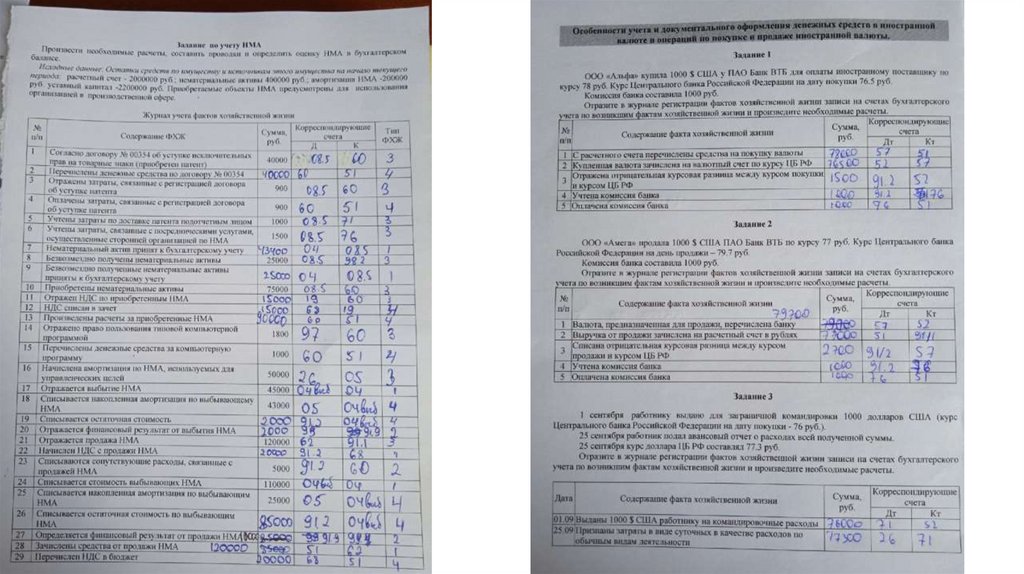 Задание по учету НМА
Произвести необходимые расчеты, составить проводки и определить оценку НМА в бухгалтерском
балансе.
Исходные данные: Остатки средств по имуществу и источникам этого имущества на начало текущего
периода: расчетный счет - 2000000 руб.; нематериальные активы 400000 руб.; амортизация НМА -200000
руб. уставный капитал -2200000 руб. Приобретаемые объекты НМА предусмотрены для использования
организацией в производственной сфере.
Журнал учета фактов хозяйственной жизни
№ п/п Содержание ФХЖ Сумма, руб. Корреспондирующие счета Д К Тип ФХЖ
1 Согласно договору № 00354 об уступке исключительных
прав на товарные знаки (приобретен патент) 40000 08.5 60 3
2 Перечислены денежные средства по договору № 00354 40000 60 51 4
3 Отражены затраты, связанные с регистрацией договора
об уступке патента 900 08.5 60 3
4 Оплачены затраты, связанные с регистрацией договора
об уступке патента 900 60 51 4
5 Учтены затраты по доставке патента подотчетным лицом 1000 08.5 71 3
6 Учтены затраты, связанные с посредническими услугами,
осуществленные сторонней организацией по НМА 1500 08.5 76 3
7 Нематериальный актив принят к бухгалтерскому учету 43400 04 08.5 1
8 Безвозмездно получены нематериальные активы 25000 08.5 98.2 3
9 Безвозмездно полученные нематериальные активы
приняты к бухгалтерскому учету 25000 04 08.5 1
10 Приобретены нематериальные активы 75000 08.5 60 3
11 Отражен НДС по приобретенным НМА 15000 19 60 3
12 НДС списан в зачет 15000 68 19 4
13 Произведены расчеты за приобретенные НМА 90000 60 51 4
14 Отражено право пользования типовой компьютерной
программой 1800 97 60 3
15 Перечислены денежные средства за компьютерную
программу 1000 60 51 4
16 Начислена амортизация по НМА, используемых для
управленческих целей 50000 26 05 3
17 Отражается выбытие НМА 45000 04выб 04 1
18 Списывается накопленная амортизация по выбывающему
НМА 43000 05 04выб 4
19 Списывается остаточная стоимость 2000 91.2 04выб 4
20 Отражается финансовый результат от выбытия НМА 2000 99 91.9
21 Отражается продажа НМА 120000 62 91.1 3
22 Начислен НДС с продажи НМА 20000 91.2 68
23 Списываются сопутствующие расходы, связанные с
продажей НМА 5000 91.2 60 2
24 Списывается стоимость выбывающих НМА 110000 04выб 04 1
25 Списывается накопленная амортизация по выбывающим
НМА 25000 05 04выб 4
26 Списывается остаточная стоимость по выбывающим
НМА 85000 91.2 04выб 4
27 Определяется финансовый результат от продажи НМА 2
28 Зачислены средства от продажи НМА 120000 51 62 1
29 Перечислен НДС в бюджет 20000 68 51 4
Особенности учета и документального оформления денежных средств в иностранной
валюте и операций по покупке и продаже иностранной валюты.
Задание 1
ООО «Альфа» купила 1000 $ США у ПАО Банк ВТБ для оплаты иностранному поставщику по
курсу 78 руб. Курс Центрального банка Российской Федерации на дату покупки 76.5 руб.
Комиссия банка составила 1000 руб.
Отразите в журнале регистрации фактов хозяйственной жизни записи на счетах бухгалтерского
учета по возникшим фактам хозяйственной жизни и произведите необходимые расчеты.
№ п/п Содержание факта хозяйственной жизни Сумма, руб. Корреспондирующие счета Дт Кт
1 С расчетного счета перечислены средства на покупку валюты 78000 57 51
2 Купленная валюта зачислена на валютный счет по курсу ЦБ РФ 76500 52 57
3 Отражена отрицательная курсовая разница между курсом покупки
и курсом ЦБ РФ 1500 91.2 52
4 Учтена комиссия банка 1000 91.2 76
5 Оплачена комиссия банка 1000 76 51
Задание 2
ООО «Амега» продала 1000 $ США ПАО Банк ВТБ по курсу 77 руб. Курс Центрального банка
Российской Федерации на день продажи – 79.7 руб.
Комиссия банка составила 1000 руб.
Отразите в журнале регистрации фактов хозяйственной жизни записи на счетах бухгалтерского
учета по возникшим фактам хозяйственной жизни и произведите необходимые расчеты.
№ п/п Содержание факта хозяйственной жизни Сумма, руб. Корреспондирующие счета Дт Кт
79700
1 Валюта, предназначенная для продажи, перечислена банку 57 52
2 Выручка от продажи зачислена на расчетный счет в рублях 77000 51 91/1
3 Списана отрицательная курсовая разница между курсом
продажи и курсом ЦБ РФ 2700 91/2 57
4 Учтена комиссия банка 1000 91.2 76
5 Оплачена комиссия банка 1000 76 51
Задание 3
1 сентября работнику выдано для заграничной командировки 1000 долларов США (курс
Центрального банка Российской Федерации на дату покупки - 76 руб.).
25 сентября работник подал авансовый отчет о расходах всей полученной суммы.
25 сентября курс доллара ЦБ РФ составлял 77.3 руб.
Отразите в журнале регистрации фактов хозяйственной жизни записи на счетах бухгалтерского
учета по возникшим фактам хозяйственной жизни и произведите необходимые расчеты.
Дата Содержание факта хозяйственной жизни Сумма, руб. Корреспондирующие счета Дт Кт
01.09 Выданы 1000 $ США работнику на командировочные расходы 76000 71 52
25.09 Признаны затраты в виде суточных в качестве расходов по
обычным видам деятельности 77300 26 71